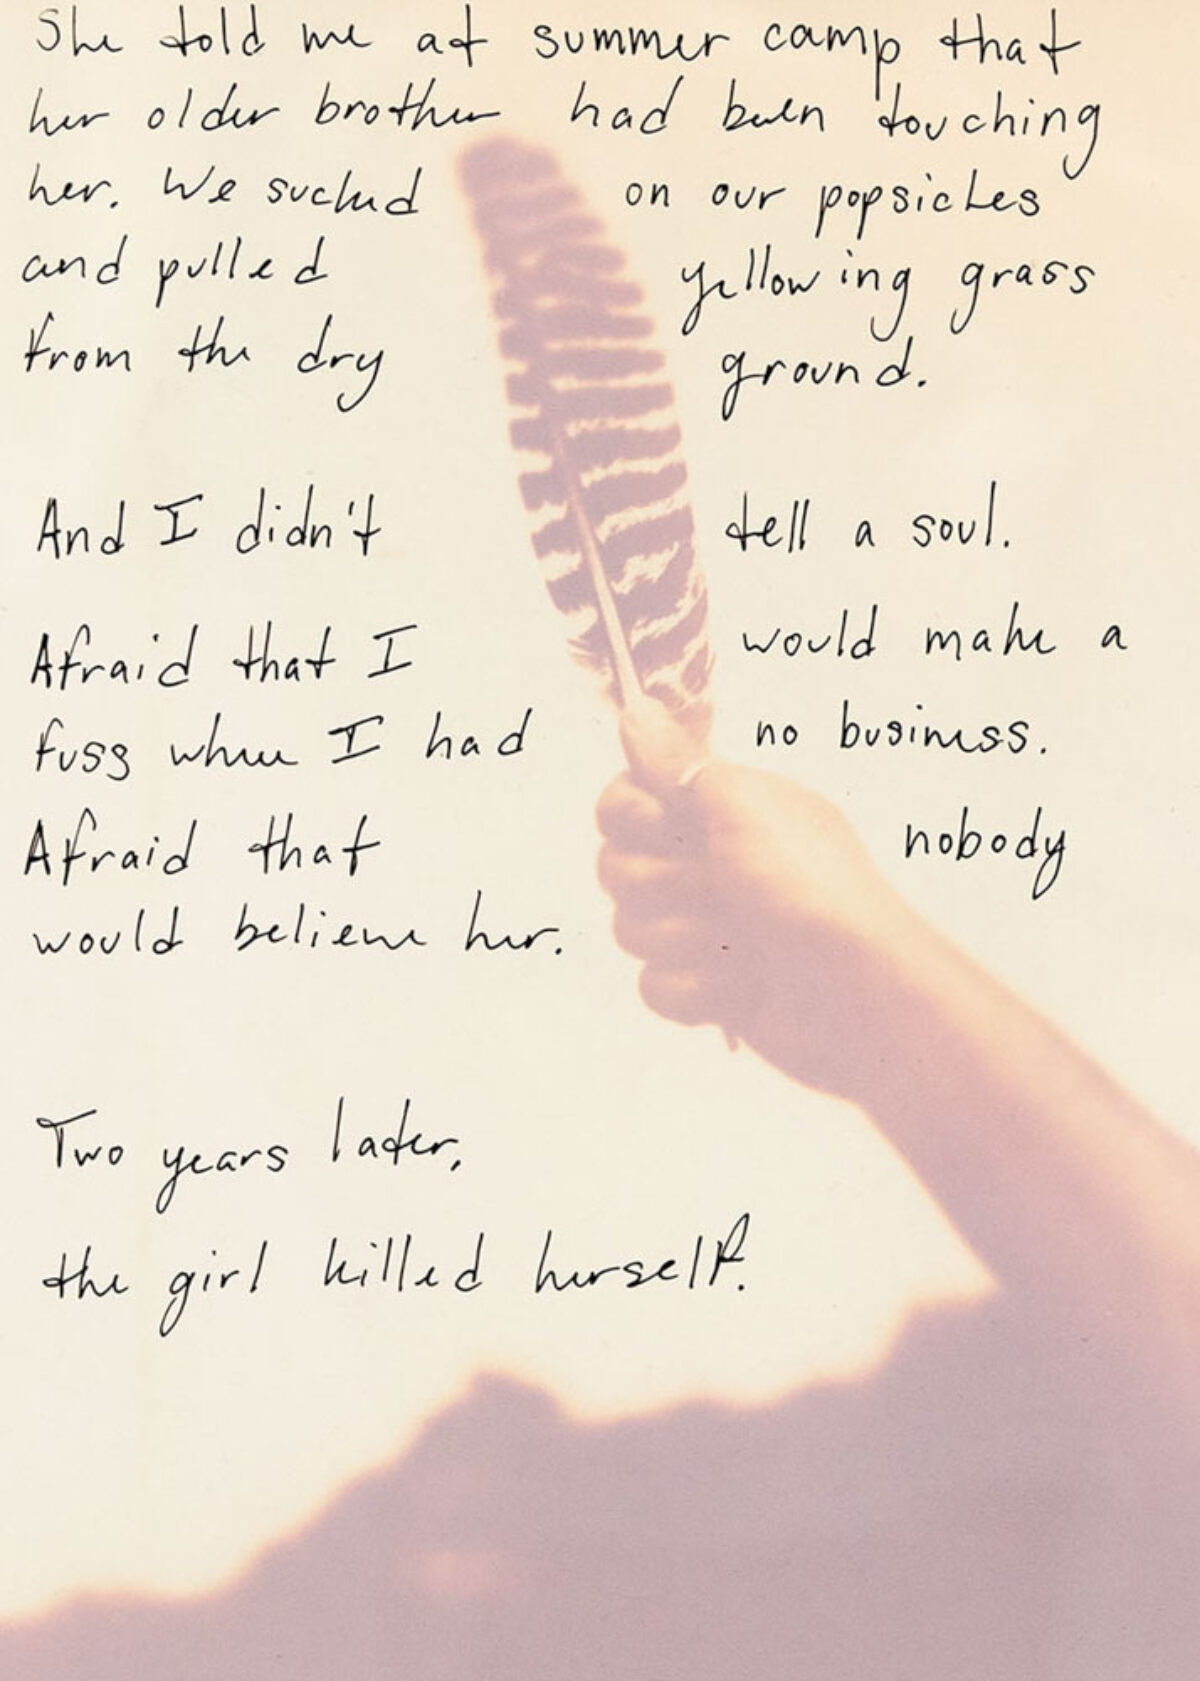 She told me at summer camp that
her older brother had been touching
her. We sucked on our popsicles
and pulled yellowing grass
from the dry ground.
And I didn't tell a soul.
Afraid that I would make a
fuss where I had no business.
Afraid that nobody
would believe her.
Two years later,
the girl killed herself.